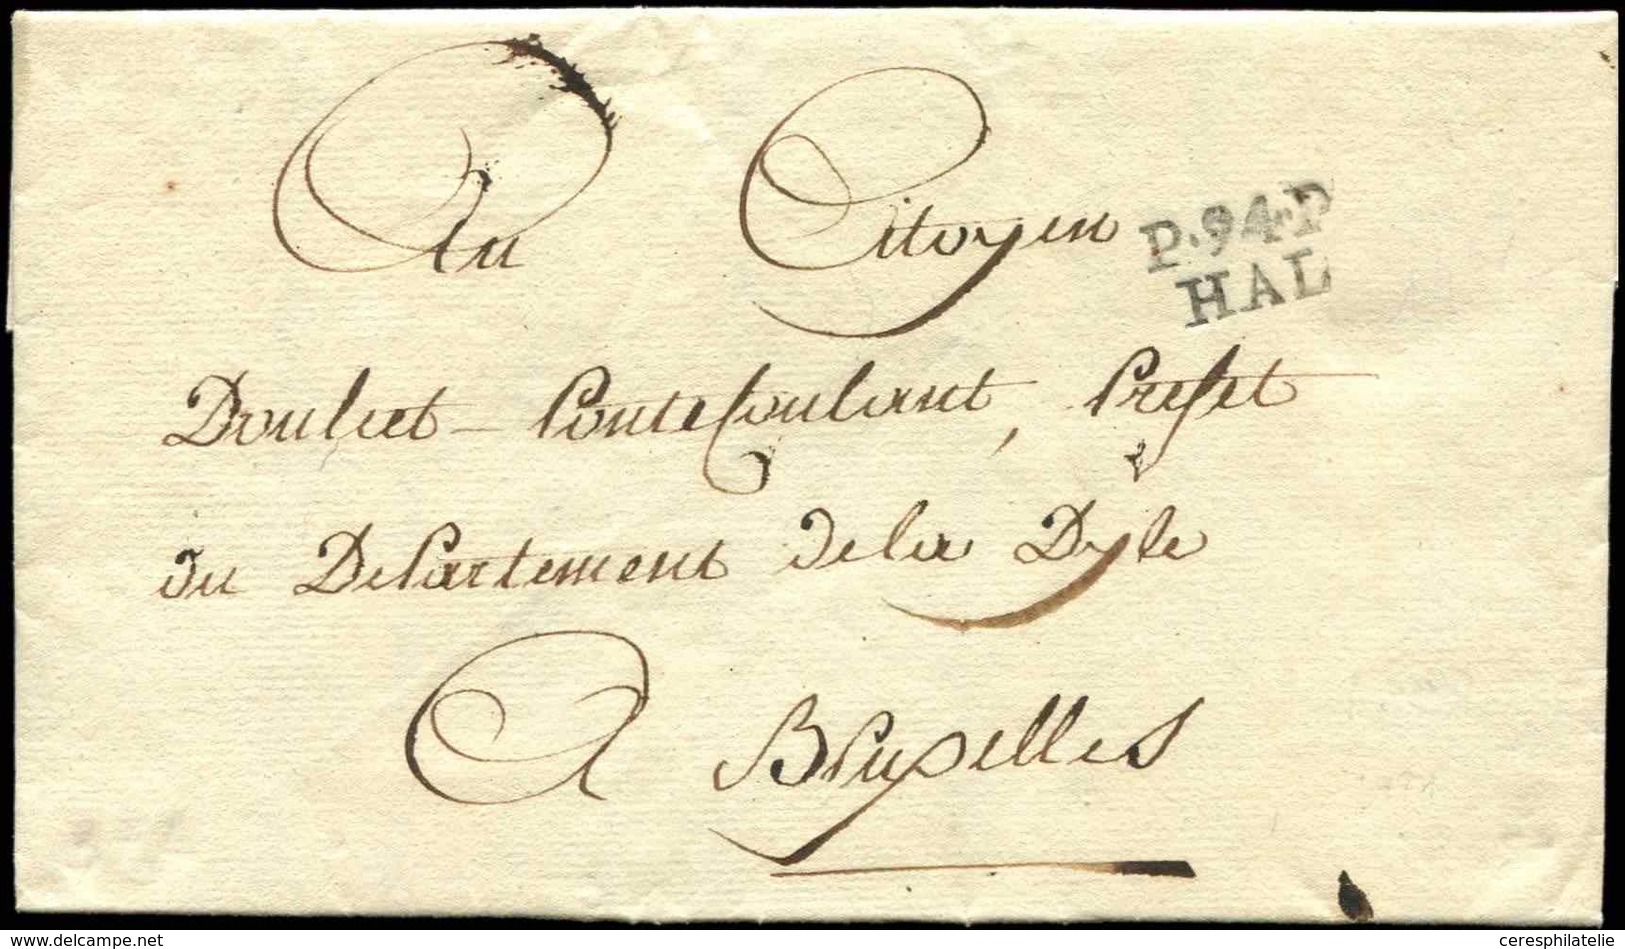 Au Citoyen
P.94.P
HAL
Doulcet-Pontecoulant, Prefet
du Departement de la Dyle
A Bruxelles
www.delcampe.net
ceresphilatelie